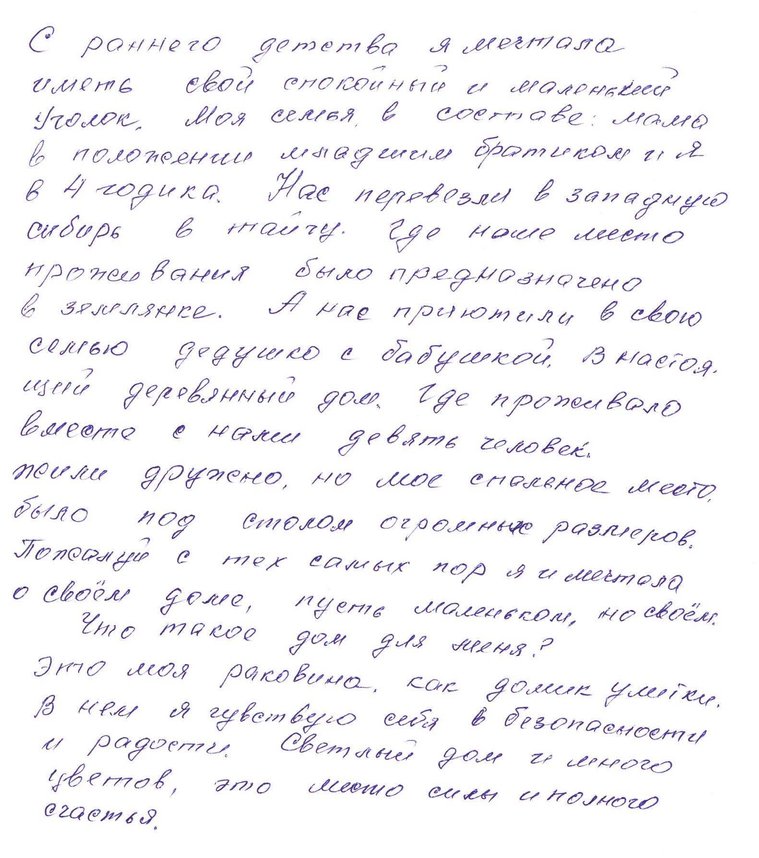 С раннего детства я мечтала
иметь свой спокойный и маленький
уголок. Моя семья в составе: мама
в положении младшим братиком и я
в 4 годика. Нас перевезли в западную
сибирь в тайгу. Где наше место
проживания было предназначено
в землянке. А нас приютили в свою
семью дедушка с бабушкой. В настоя-
щий деревянный дом. Где проживало
вместе с нами девять человек.
жили дружно, но мое спальное место,
было под столом огромных размеров.
Пожалуй с тех самых пор я и мечтала
о своём доме, пусть маленьком, но своём.
Что такое дом для меня?
Это моя раковина, как домик улитки.
В нем я чувствую себя в безопасности
и радости. Светлый дом и много
цветов, это место силы и полного
счастья.